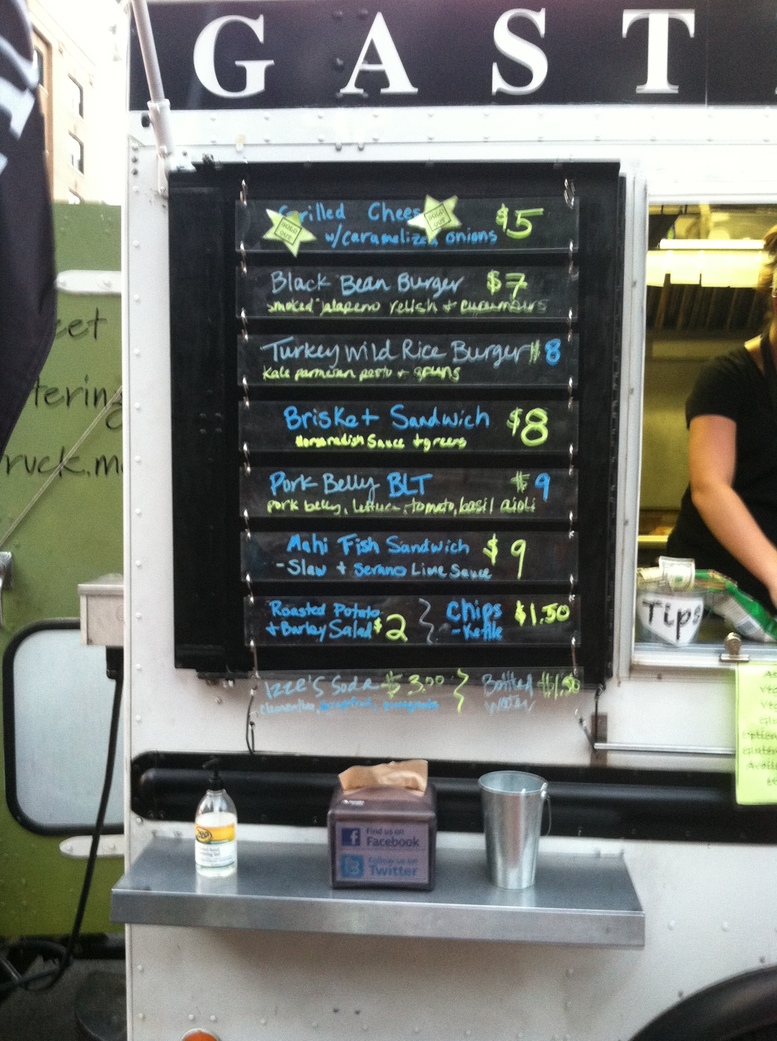 GAST
Grilled Chees $5
SOLD OUT
SOLD OUT
w/caramelized onions
Black Bean Burger $7
smoked jalapeno relish + cucumbers
Turkey Wild Rice Burger $8
kale parmesan pesto + greens
Brisket Sandwich $8
Horseradish Sauce + greens
Pork Belly BLT $9
pork belly, lettuce, tomato, basil aioli
Mahi Fish Sandwich $9
- Slaw + Serano Lime Sauce
Roasted Potato + Barley Salad $2
Chips $1.50
- Kettle
Izze's Soda $3.00
clementine, grapefruit, pomegranate
Bottled Water $1.50
Tips
eet
tering
ruck.m
Find us on
Facebook
Follow us on
Twitter